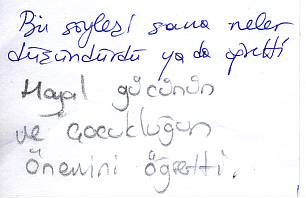 Bu söyleşi sana neler
düşündürdü ya da öğretti
Hayal gücünün
ve çocukluğun
önemini öğretti.